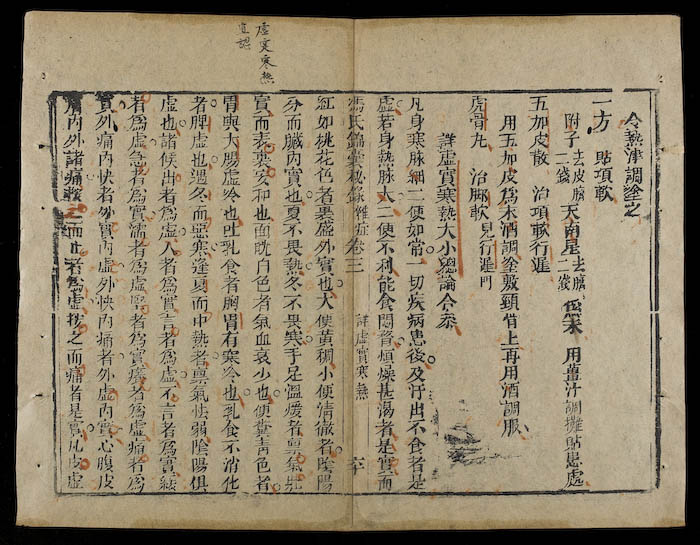 虛實寒熱
宜認
令熱津調塗之
一方　貼項軟
附子去皮臍二錢　天南星去臍二錢　爲末　用薑汁調攤貼患處
五加皮散　治項軟行遲
用五加皮爲末酒調塗敷頸骨上再用酒調服
虎骨丸　治脚軟見行遲門
詳虛實寒熱大小總論合叅
凡身寒脉細二便如常一切疾病患後及汗出不食者是
虛若身熱脉大二便不利能食悶瞀煩燥甚渴者是實而
馮氏錦囊秘錄雜症卷三　詳虛實寒熱　六十
紅如桃花色者裏盛外實也大便黃稠小便清徹者陰陽
分而臟內實也夏不畏熱冬不畏寒手足溫煖者禀氣壯
實而表裏安和也面㿠白色者氣血衰少也便糞青色者
胃與大腸虛冷也吐乳食者胸胃有寒冷也乳食不消化
者脾虛也遇冬而惡寒逢夏而中熱者禀氣怯弱陰陽俱
虛也諸候出者爲虛入者爲實言者爲虛不言者爲實緩
者爲虛急者爲實濡者爲虛牢者爲實癢者爲虛痛者爲
實外痛內快者外實內虛外快內痛者外虛內實心腹皮
膚內外諸痛按之而止者爲虛按之而痛者是實凡皮虛